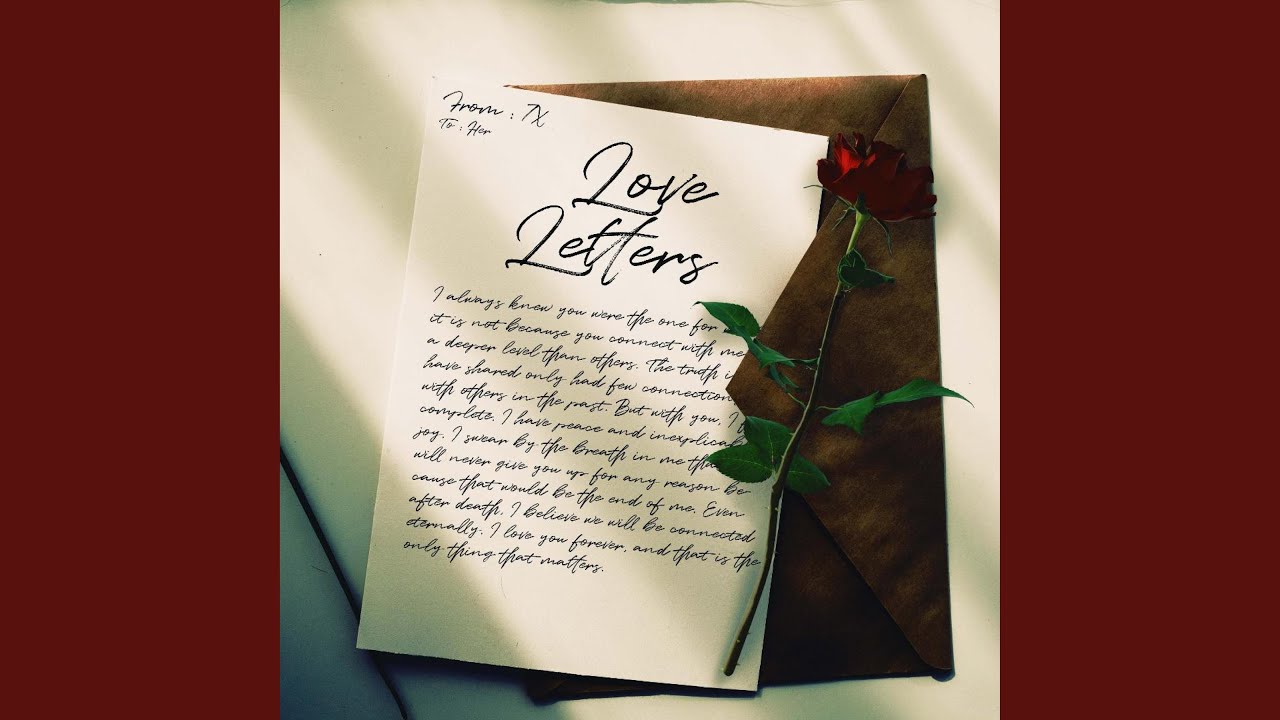 From : 7X
To : Her
Love
Letters
I always knew you were the one for
it is not because you connect with me
a deeper level than others. The truth i
have shared only had few connection
with others in the past. But with you, I
complete. I have peace and inexplica
joy. I swear by the breath in me tha
will never give you up for any reason be-
cause that would be the end of me. Even
after death, I believe we will be connected
eternally. I love you forever, and that is the
only thing that matters.